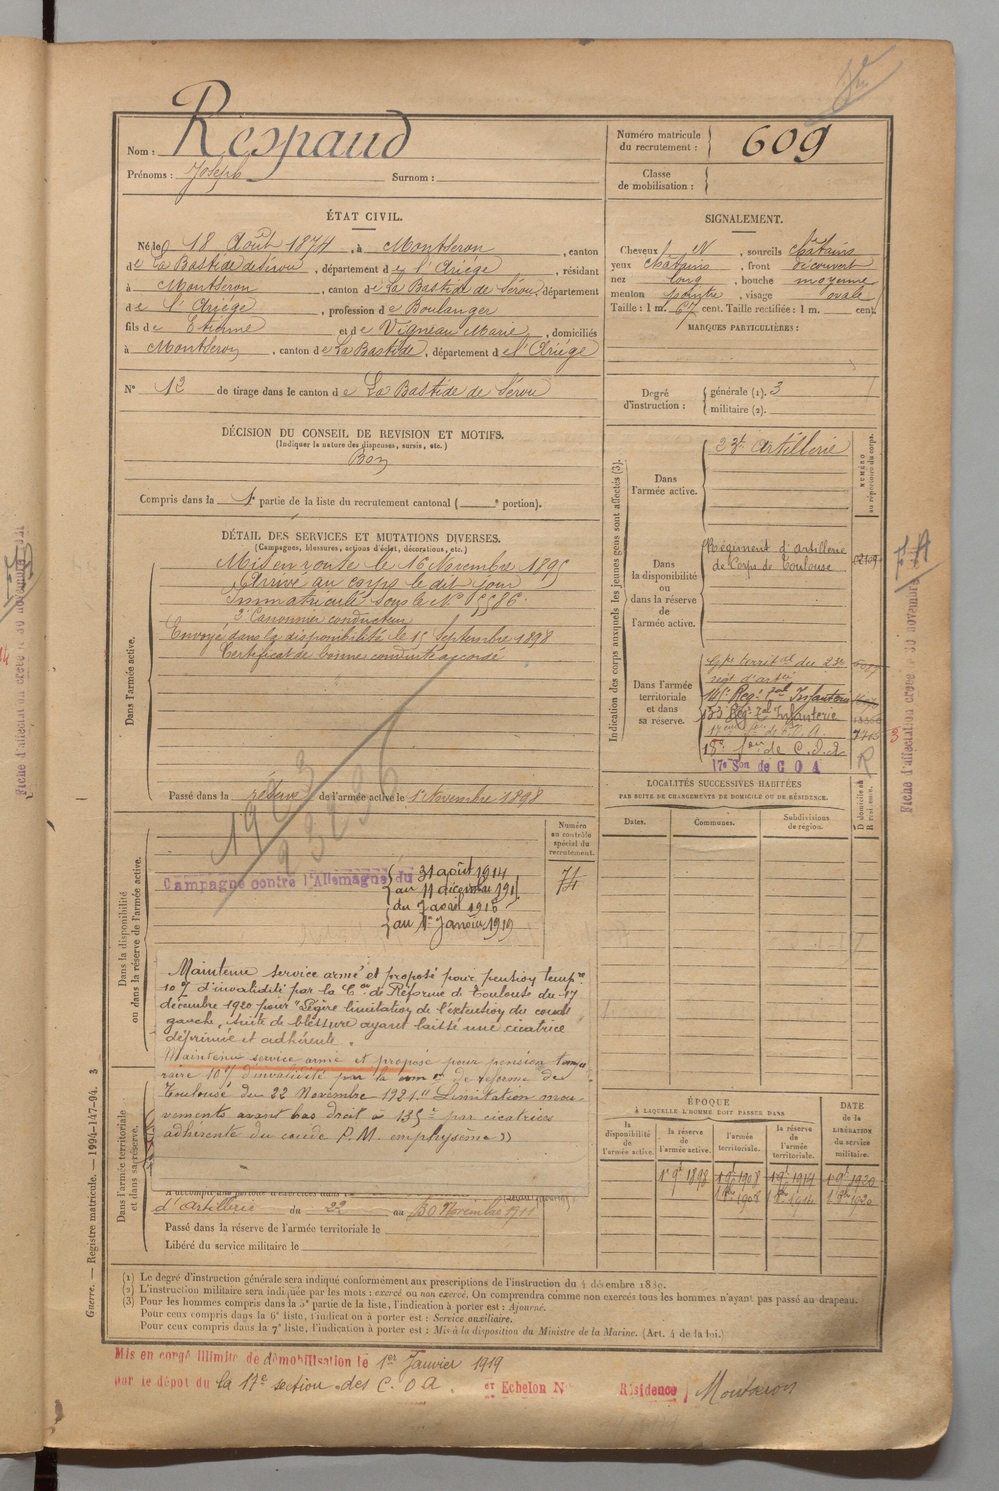 Nom : Respaud
Prénoms : Joseph Surnom :
Numéro matricule du recrutement : 609
Classe de mobilisation :
ÉTAT CIVIL.
Né le 18 Août 1874, à Montseron, canton
de La Bastide de Sérou, département de l'Ariége, résidant
à Montseron, canton de La Bastide de Sérou, département
de l'Ariége, profession de Boulanger
fils de Etienne et de Vigneau Marie, domiciliés
à Montseron, canton de La Bastide, département de l'Ariége
N° 12 de tirage dans le canton de La Bastide de Sérou
DÉCISION DU CONSEIL DE REVISION ET MOTIFS.
(Indiquer la nature des dispenses, sursis, etc.)
Bon
Compris dans la 1e partie de la liste du recrutement cantonal ( e portion).
SIGNALEMENT.
Cheveux N, sourcils châtains
yeux châtains, front découvert
nez long, bouche moyenne
menton pointu, visage ovale
Taille : 1 m. 67 cent. Taille rectifiée : 1 m. cent.
MARQUES PARTICULIÈRES :
Degré d'instruction : générale (1). 3
militaire (2).
DÉTAIL DES SERVICES ET MUTATIONS DIVERSES.
(Campagnes, blessures, actions d'éclat, décorations, etc.)
Dans l'armée active.
Mis en route le 16 Novembre 1895
Arrivé au corps le dit jour
Immatriculé sous le N° 5586.
2e Canonnier conducteur
Envoyé dans la disponibilité le 15 Septembre 1898
Certificat de bonne conduite accordé
Passé dans la réserve de l'armée active le 1er Novembre 1898
Indication des corps auxquels les jeunes gens sont affectés (3).
NUMÉRO au répertoire du corps.
Dans l'armée active.
23e Artillerie
Dans la disponibilité ou dans la réserve de l'armée active.
Régiment d'artillerie
de Corps de Toulouse
Dans l'armée territoriale et dans sa réserve.
Gpe territal du 23e
régt d'arterie
133e Régt tal Infanterie
17e Son de C O A
R
LOCALITÉS SUCCESSIVES HABITÉES
PAR SUITE DE CHANGEMENTS DE DOMICILE OU DE RÉSIDENCE.
Dates. Communes. Subdivisions de région. D domicile ou R résidence.
Dans la disponibilité ou dans la réserve de l'armée active.
Numéro au contrôle spécial du recrutement.
74
Campagne contre l'Allemagne du 31 août 1914
au 11 décembre 191
du 7 avril 1916
au 1er Janvier 1919
Maintenu service armé et proposé pour pension tempre
10% d'invalidité par la Con de Réforme de Toulouse du 17
décembre 1920 pour "Légère limitation de l'extension du coude
gauche, suite de blessure ayant laissé une cicatrice
déprimée et adhérente.
Maintenu service armé et proposé pour pension tempo-
raire 10% d'invalidité par la Com on de réforme de
Toulouse du 22 Novembre 1921 "Limitation mou-
vements avant bras droit à 135° par cicatrice
adhérente du coude P.M. emphysème"
Dans l'armée territoriale et dans sa réserve.
d'Artillerie du 22 au 30 Novembre 1911
Passé dans la réserve de l'armée territoriale le
Libéré du service militaire le
ÉPOQUE
À LAQUELLE L'HOMME DOIT PASSER DANS
la disponibilité de l'armée active. la réserve de l'armée active. l'armée territoriale. la réserve de l'armée territoriale.
DATE de la LIBÉRATION du service militaire.
(1) Le degré d'instruction générale sera indiqué conformément aux prescriptions de l'instruction du 4 décembre 1889.
(2) L'instruction militaire sera indiquée par les mots : exercé ou non exercé. On comprendra comme non exercés tous les hommes n'ayant pas passé au drapeau.
(3) Pour les hommes compris dans la 5e partie de la liste, l'indication à porter est : Ajourné.
Pour ceux compris dans la 6e liste, l'indication à porter est : Service auxiliaire.
Pour ceux compris dans la 7e liste, l'indication à porter est : Mis à la disposition du Ministre de la Marine. (Art. 4 de la loi.)
Guerre. — Registre matricule. — 1994-147-94. 3
Mis en congé illimité de démobilisation le 1er Janvier 1919
par le dépot du la 17e section des C. O A. et Echelon N° Résidence Montseron
Fiche d'affectation créée le 30 novembre